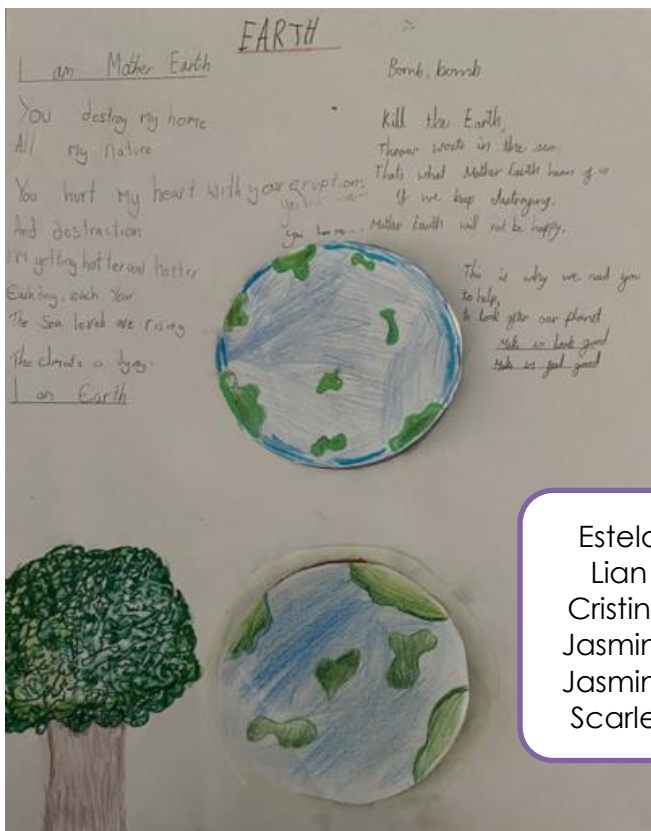 EARTH
I am Mother Earth
You destroy my home
All my nature
You hurt my heart with your eruptions
And destraction
I'm getting hotter and hotter
Each day, each Year
The Sea levels are rising
The climate is dying.
I am Earth
Bomb, bomb
Kill the Earth,
Throw waste in the sea
Thats what Mother Earth hears of us
If we keep destroying.
Mother Earth will not be happy.
This is why we need you
to help,
to look after our planet
Make us look good
Make us feel good
Estela
Lian
Cristin
Jasmin
Jasmin
Scarle